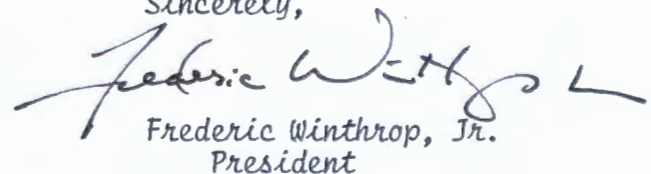 Sincerely,
Frederic Winthrop
Frederic Winthrop, Jr.
President